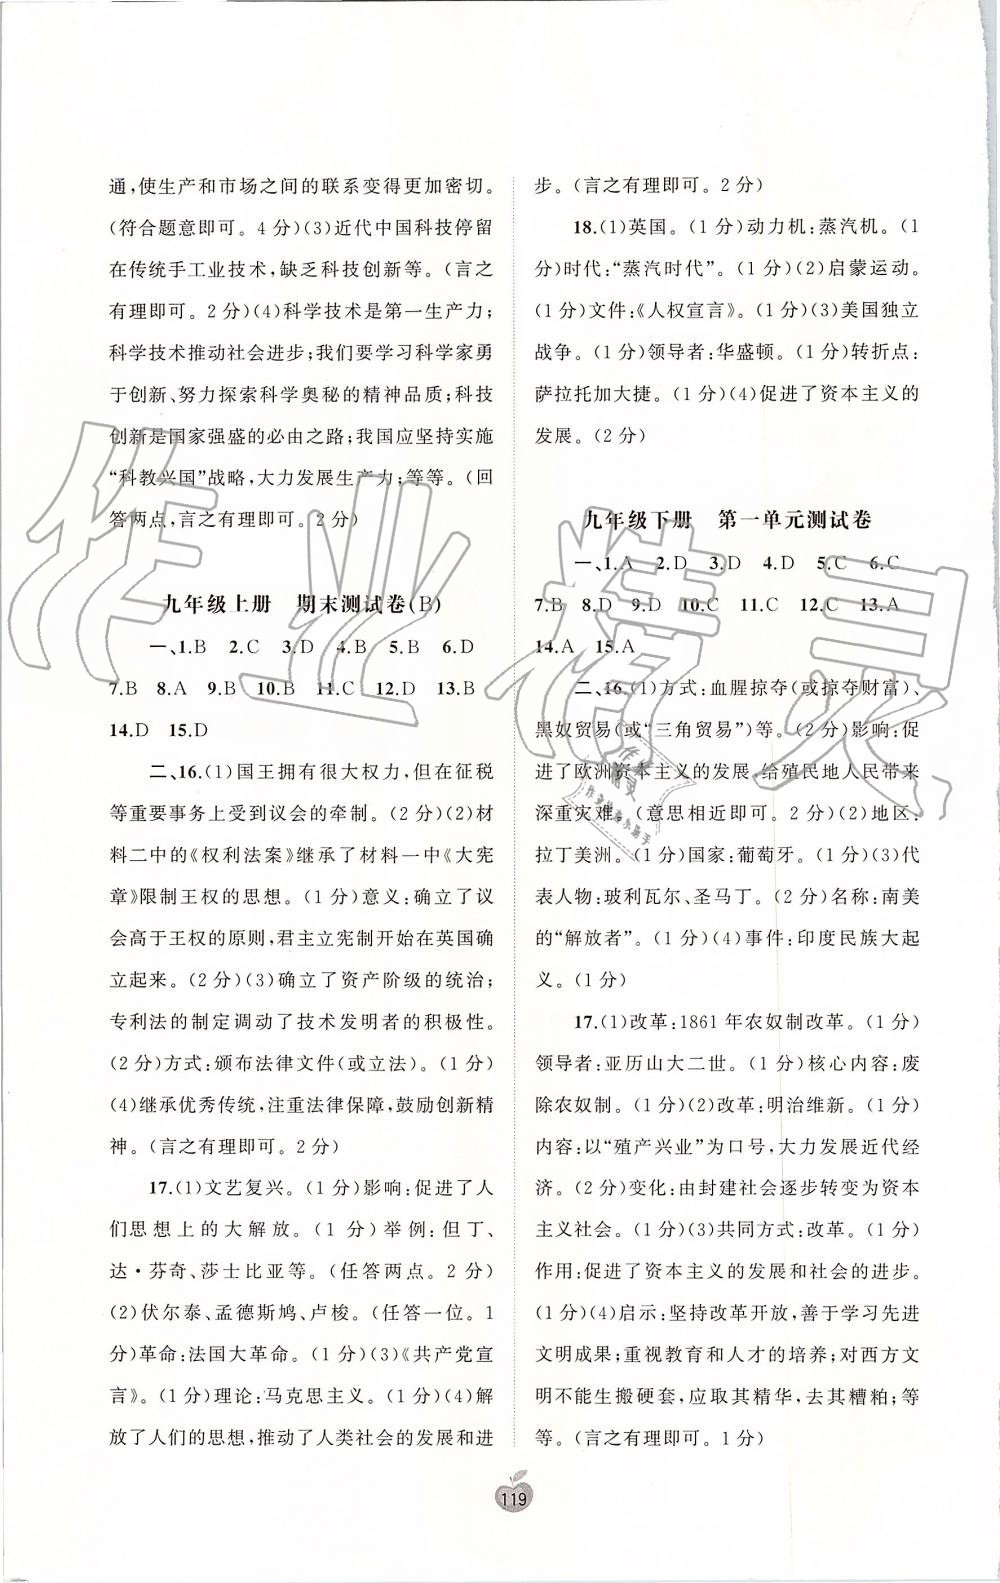 通,使生产和市场之间的联系变得更加密切。
(符合题意即可。4 分)(3)近代中国科技停留
在传统手工业技术,缺乏科技创新等。(言之
有理即可。2 分)(4)科学技术是第一生产力;
科学技术推动社会进步;我们要学习科学家勇
于创新、努力探索科学奥秘的精神品质;科技
创新是国家强盛的必由之路;我国应坚持实施
“科教兴国”战略,大力发展生产力;等等。(回
答两点,言之有理即可。2 分)
九年级上册 期末测试卷(B)
一、1.B 2.C 3.D 4.B 5.B 6.D
7.B 8.A 9.B 10.B 11.C 12.D 13.B
14.D 15.D
二、16.(1)国王拥有很大权力,但在征税
等重要事务上受到议会的牵制。(2 分)(2)材
料二中的《权利法案》继承了材料一中《大宪
章》限制王权的思想。(1 分)意义:确立了议
会高于王权的原则,君主立宪制开始在英国确
立起来。(2 分)(3)确立了资产阶级的统治;
专利法的制定调动了技术发明者的积极性。
(2 分)方式:颁布法律文件(或立法)。(1 分)
(4)继承优秀传统,注重法律保障,鼓励创新精
神。(言之有理即可。2 分)
17.(1)文艺复兴。(1 分)影响:促进了人
们思想上的大解放。(1 分)举例:但丁、
达·芬奇、莎士比亚等。(任答两点。2 分)
(2)伏尔泰、孟德斯鸠、卢梭。(任答一位。1
分)革命:法国大革命。(1 分)(3)《共产党宣
言》。(1 分)理论:马克思主义。(1 分)(4)解
放了人们的思想,推动了人类社会的发展和进
步。(言之有理即可。2 分)
18.(1)英国。(1 分)动力机:蒸汽机。(1
分)时代:“蒸汽时代”。(1 分)(2)启蒙运动。
(1 分)文件:《人权宣言》。(1 分)(3)美国独立
战争。(1 分)领导者:华盛顿。(1 分)转折点:
萨拉托加大捷。(1 分)(4)促进了资本主义的
发展。(2 分)
九年级下册 第一单元测试卷
一、1.A 2.D 3.D 4.D 5.C 6.C
7.B 8.D 9.D 10.C 11.C 12.C 13.A
14.A 15.A
二、16.(1)方式:血腥掠夺(或掠夺财富)、
黑奴贸易(或“三角贸易”)等。(2 分)影响:促
进了欧洲资本主义的发展,给殖民地人民带来
深重灾难。(意思相近即可。2 分)(2)地区:
拉丁美洲。(1 分)国家:葡萄牙。(1 分)(3)代
表人物:玻利瓦尔、圣马丁。(2 分)名称:南美
的“解放者”。(1 分)(4)事件:印度民族大起
义。(1 分)
17.(1)改革:1861 年农奴制改革。(1 分)
领导者:亚历山大二世。(1 分)核心内容:废
除农奴制。(1 分)(2)改革:明治维新。(1 分)
内容:以“殖产兴业”为口号,大力发展近代经
济。(2 分)变化:由封建社会逐步转变为资本
主义社会。(1 分)(3)共同方式:改革。(1 分)
作用:促进了资本主义的发展和社会的进步。
(1 分)(4)启示:坚持改革开放,善于学习先进
文明成果;重视教育和人才的培养;对西方文
明不能生搬硬套,应取其精华,去其糟粕;等
等。(言之有理即可。1 分)
119
作业精灵